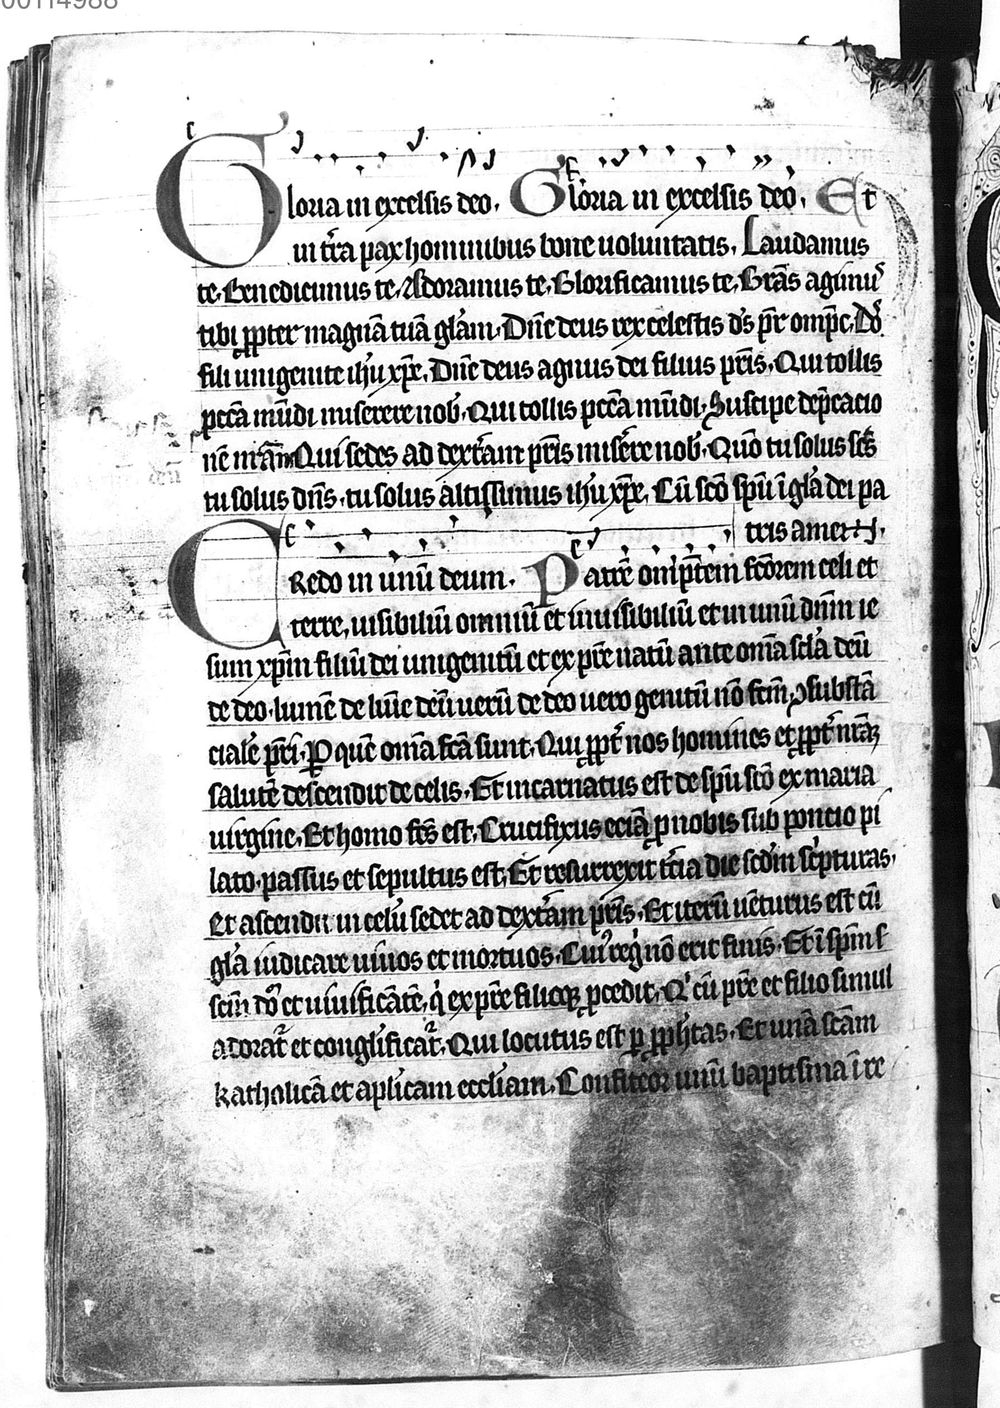 00114988
Gloria in excelsis deo. Gloria in excelsis deo. Et
in t̄ra pax hominibus bone uoluntatis. Laudamus
te. Benedicimus te. Adoramus te. Glorificamus te. Grās agimꝰ
tibi ꝓpter magnā tuā glām. Dn̄e deus rex celestis ds̄ pr̄ omp̄c. Dn̄e
fili unigenite ih̄u xp̄e. Dn̄e deus agnus dei filius pr̄is. Qui tollis
pccā mūdi miserere nob̄. Qui tollis pccā mūdi. Suscipe dep̄cacio
nē nr̄am Qui sedes ad dext̄am pr̄is mis̄ere nob̄. Quō tu solus sc̄s
tu solus dn̄s. tu solus altissimus ih̄u xp̄e. Cū scō sp̄u ī glā dei pa
tris amen.
Credo in unū deum. Patrē om̄ip̄tem fcōrem celi et
terre. uisibiliū omniū et inuisibiliū et in unū dn̄m ie
sum xp̄m filiū dei unigenitū et ex pr̄e natū ante om̄ia sclā deū
de deo. lumē de lūīe deū uerū de deo uero genitū nō fcm̄. ꝯsubstā
cialē pr̄i. P quē om̄ia fcā sunt. Qui ꝓpt̄ nos homines et ꝓpt̄ nr̄aꝫ
salutē descendit de celis. Et incarnatus est de sp̄u scō ex maria
uirgine. Et homo fc̄s est. Crucifixus eciā ꝓ nobis sub poncio pi
lato. passus et sepultus est. Et resurrexit t̄cia die scd̄m sc̄pturas.
Et ascendit in celū sedet ad dext̄am pr̄is. Et iterū uēturus est cū
glā iudicare uiuos et mortuos. Cuiꝰ regⁱ nō erit finis. Et ī sp̄m s
scm̄ dn̄m et uiuificātē. qⁱ ex pr̄e filioqꝫ ꝓcedit. Qⁱ cū pr̄e et filio simul
adorat̄ et conglificat̄. Qui locutus est ꝑ ꝓph̄tas. Et unā scām
katholicā et aplicam eccliam. Confiteor unū baptisma ī re